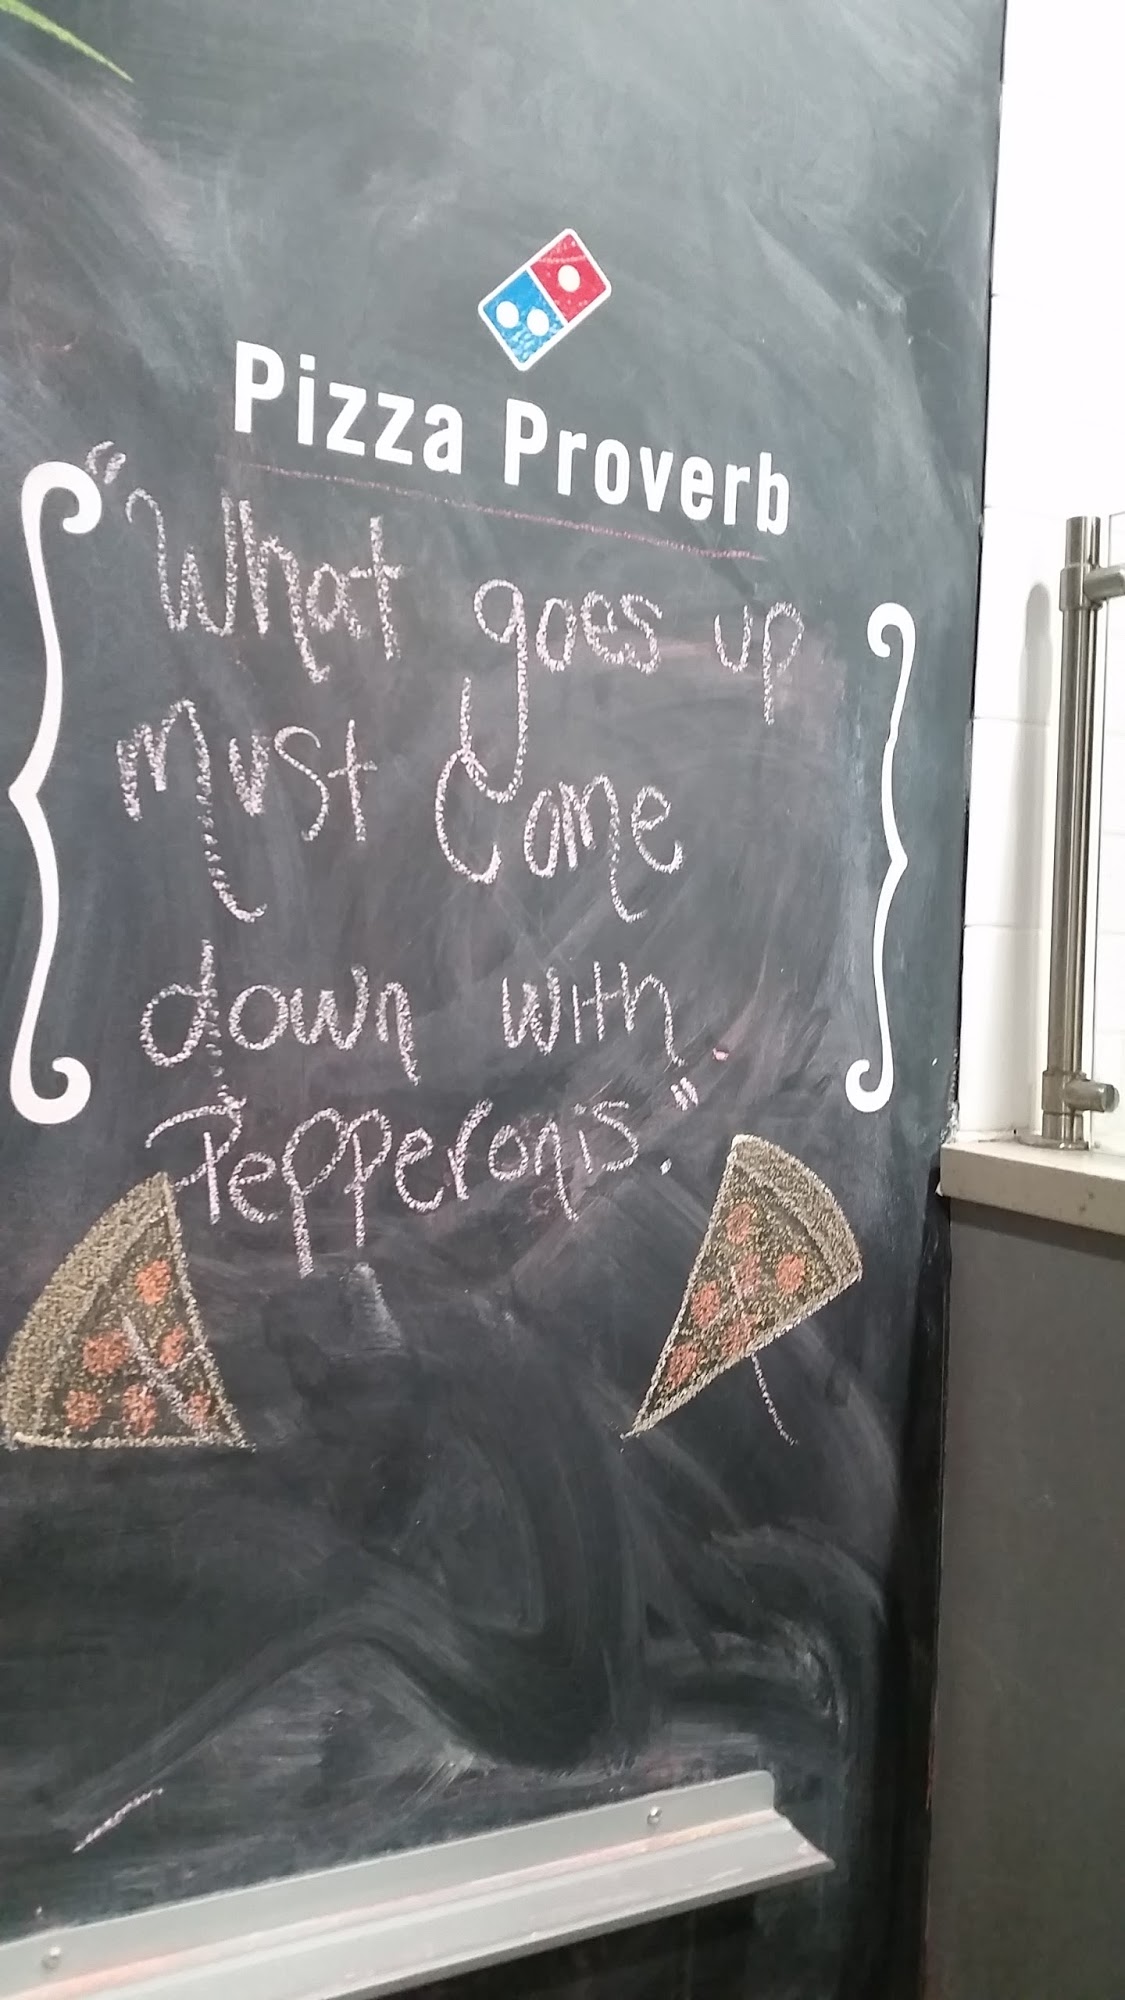 Pizza Proverb
"What goes up
must come
down with
Pepperonis."